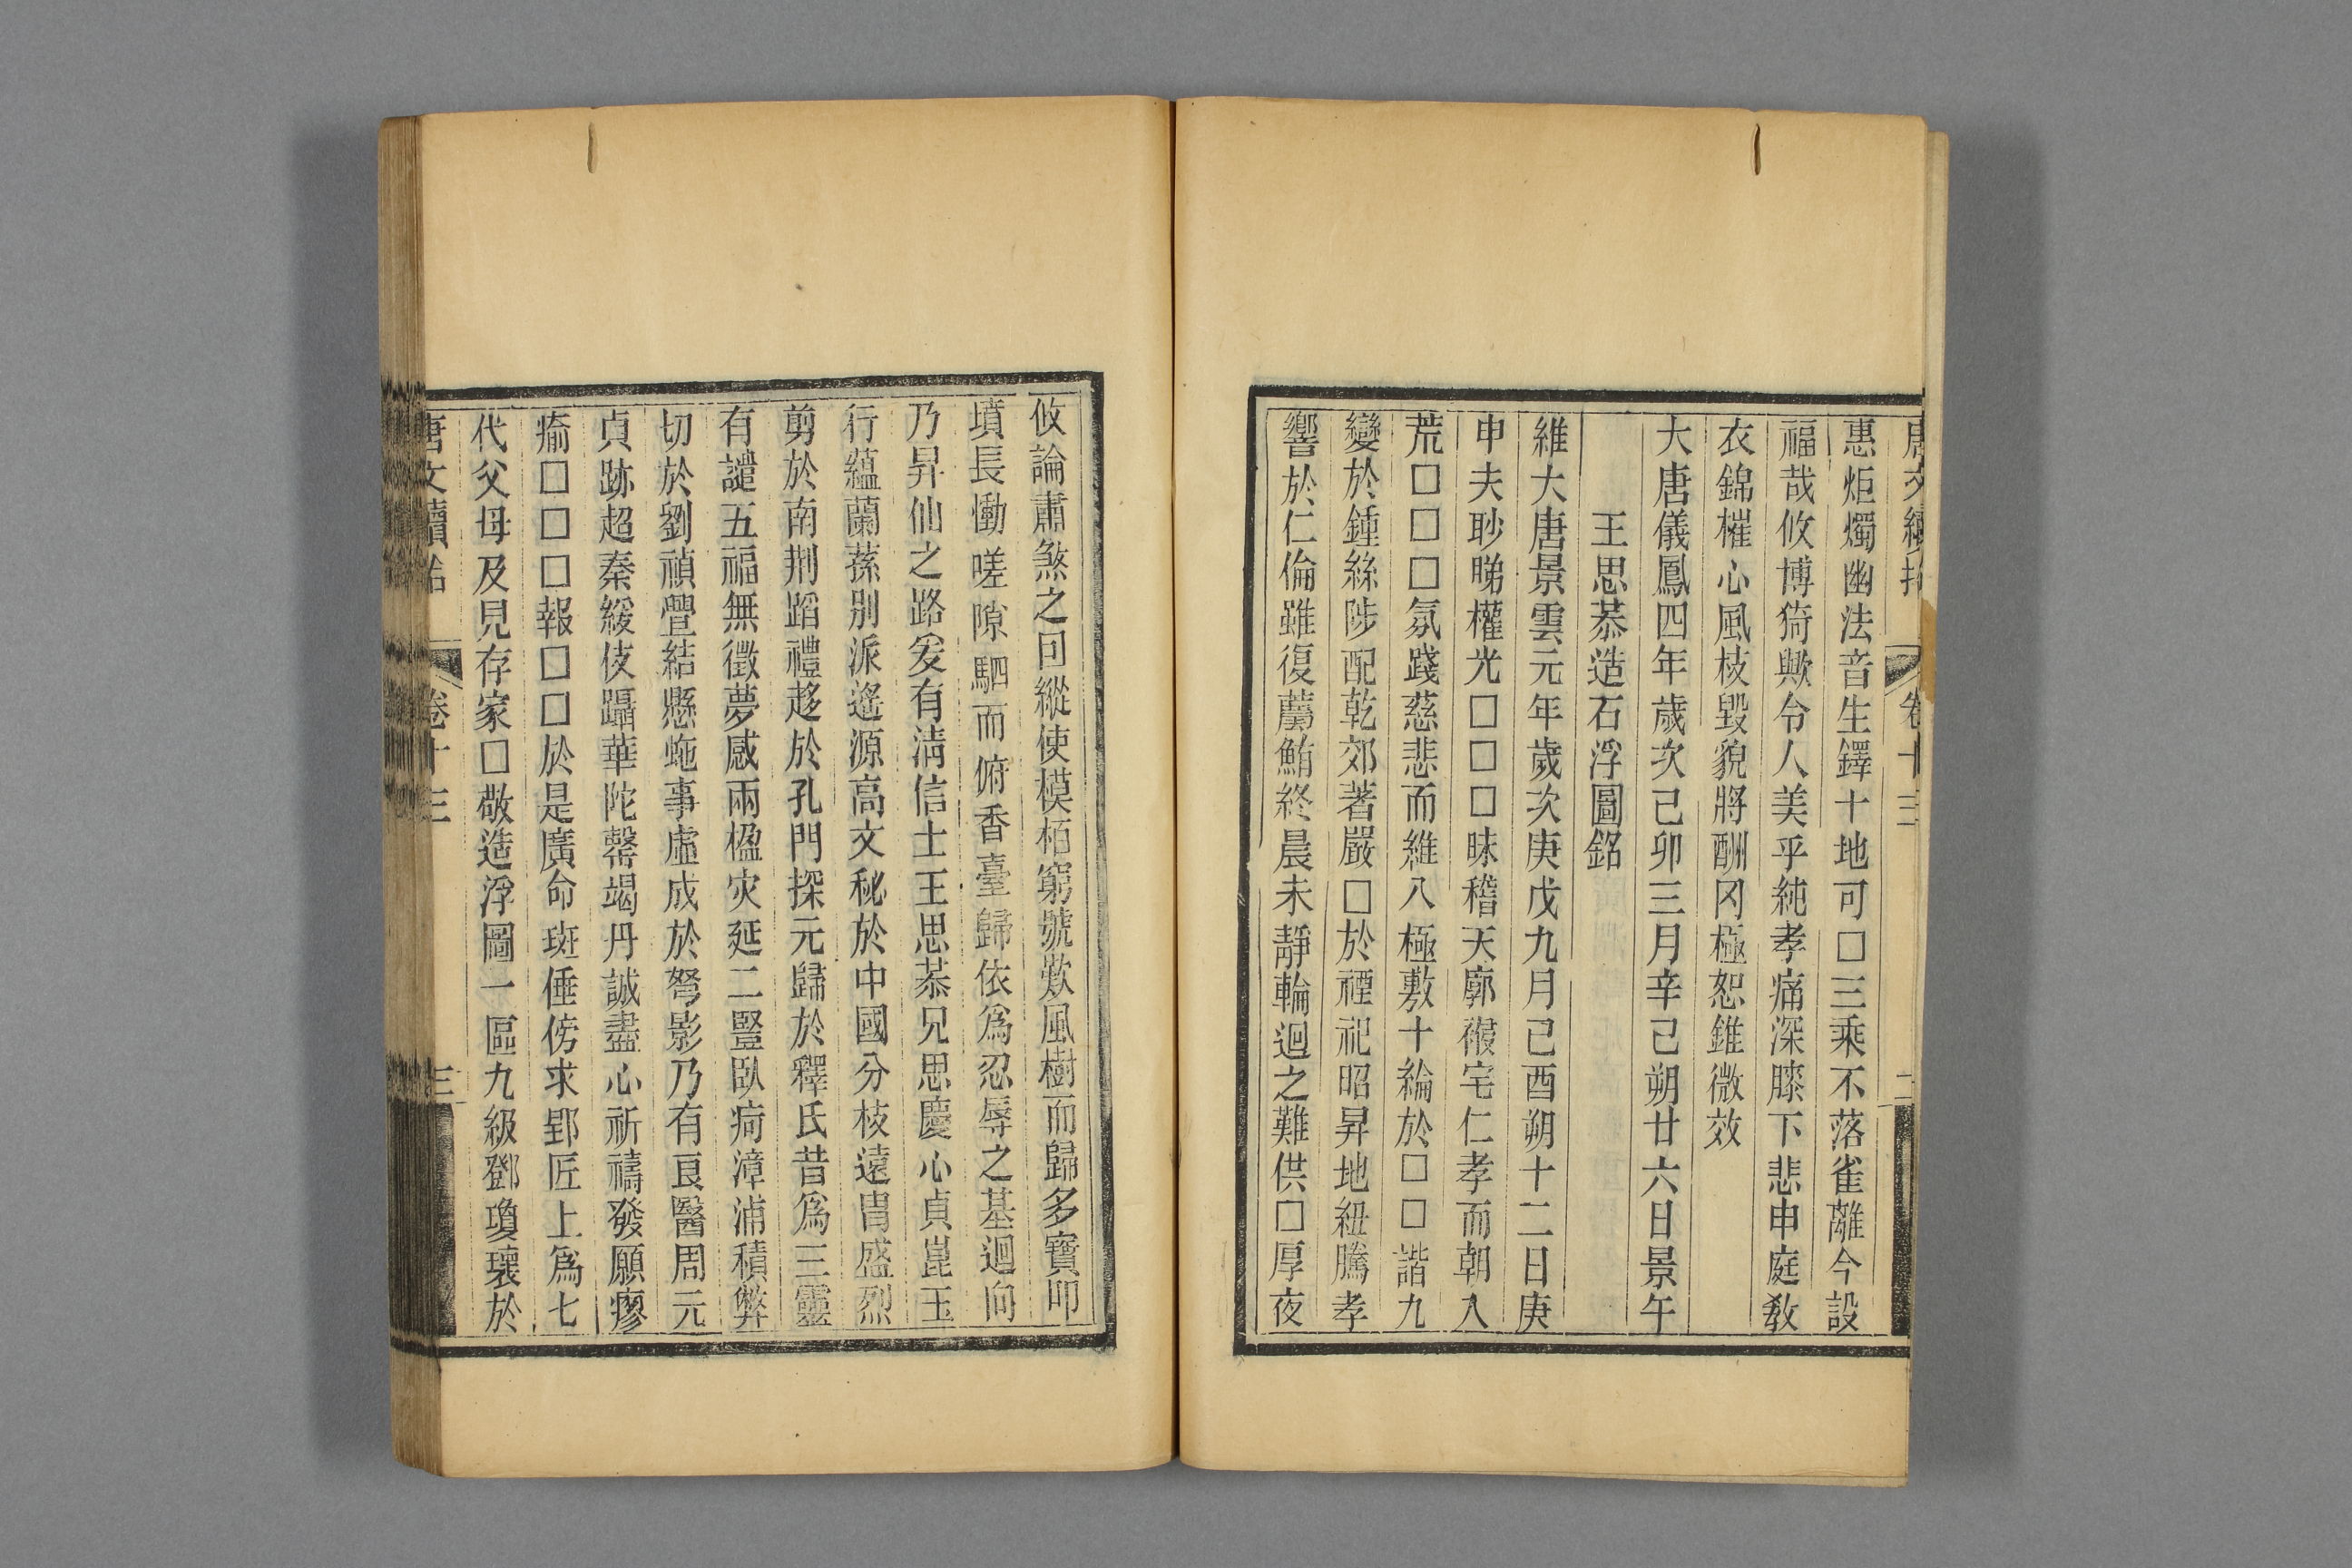 唐文續拾 卷十三 二
惠炬燭幽法音生鐸十地可□三乘不落雀離今設
福哉攸博猗歟令人美乎純孝痛深膝下悲申庭教
衣錦摧心風枝毀貌將酬冈極恕錐微效
大唐儀鳳四年歲次己卯三月辛已朔廿六日景午
王思恭造石浮圖銘
維大唐景雲元年歲次庚戊九月己酉朔十二日庚
申夫眇睇權光□□□昧稽天廓椴宅仁孝而朝入
荒□□□氛踐慈悲而維八極敷十綸於□□諧九
變於鍾絲陟配乾郊著嚴□於禋祀昭昇地紐騰孝
響於仁倫雖復薦鮪終晨未靜輪迴之難供□厚夜
攸論肅煞之回縱使模栢窮號歎風樹而歸多寶叩
墳長慟嗟隙駟而俯香臺歸依爲忍辱之基迴向
乃昇仙之路爰有淸信士王思恭兄思慶心貞崑玉
行蘊蘭蓀別派遙源高文秘於中國分枝遠胄盛烈
剪於南荆蹈禮趍於孔門探元歸於釋氏昔爲三靈
有譴五福無徵夢感兩楹灾延二豎臥疴漳浦積弊
切於劉禎疊結懸虵事虛成於弩影乃有良醫周元
貞跡超秦緩伎躡華陀罄竭丹誠盡心祈禱發願瘳
痊□□□報□□於是廣命斑倕傍求郢匠上爲七
代父母及見存家□敬造浮圖一區九級鄧瓊瓌於
唐文續拾 卷十三 三